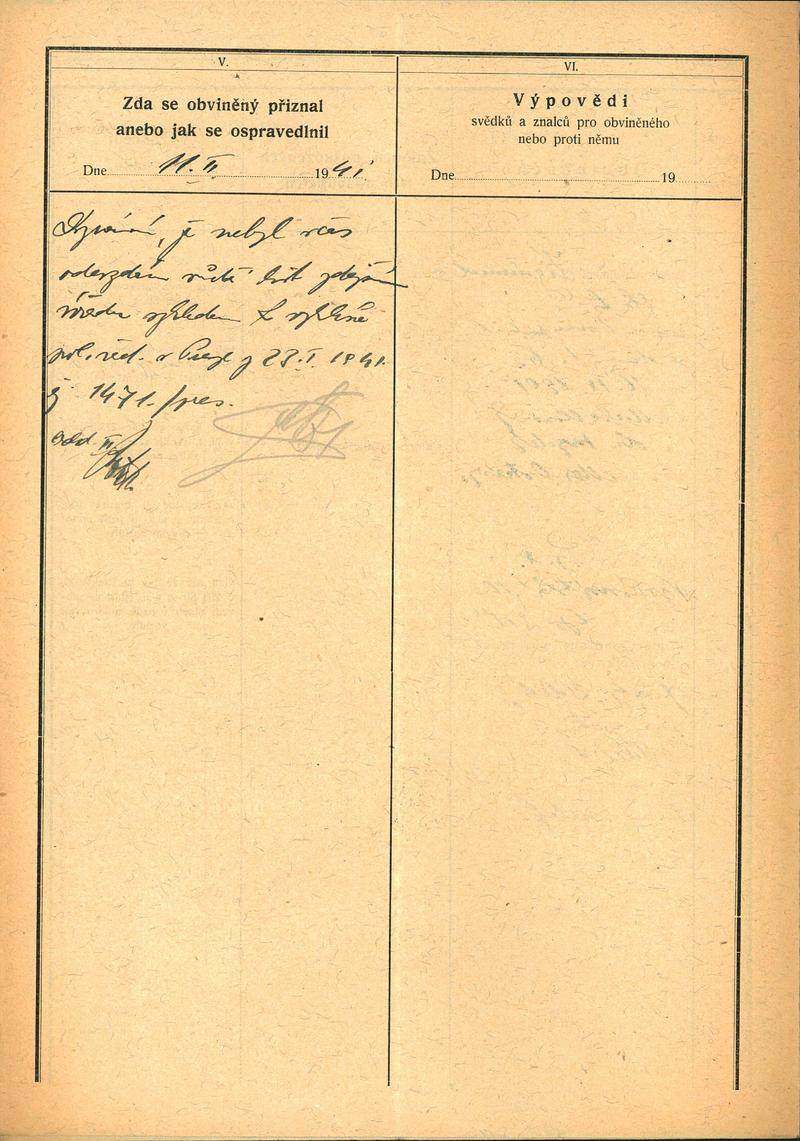 V.
Zda se obviněný přiznal
anebo jak se ospravedlnil
Dne 11. II 1941
že nebyl včas
odevzdán list
úřadu vzhledem k vyhlášce
pol. řed. v Praze z 23. I. 1941
čj 1471./pres.
odd. II
VI.
Výpovědi
svědků a znalců pro obviněného
nebo proti němu
Dne 19